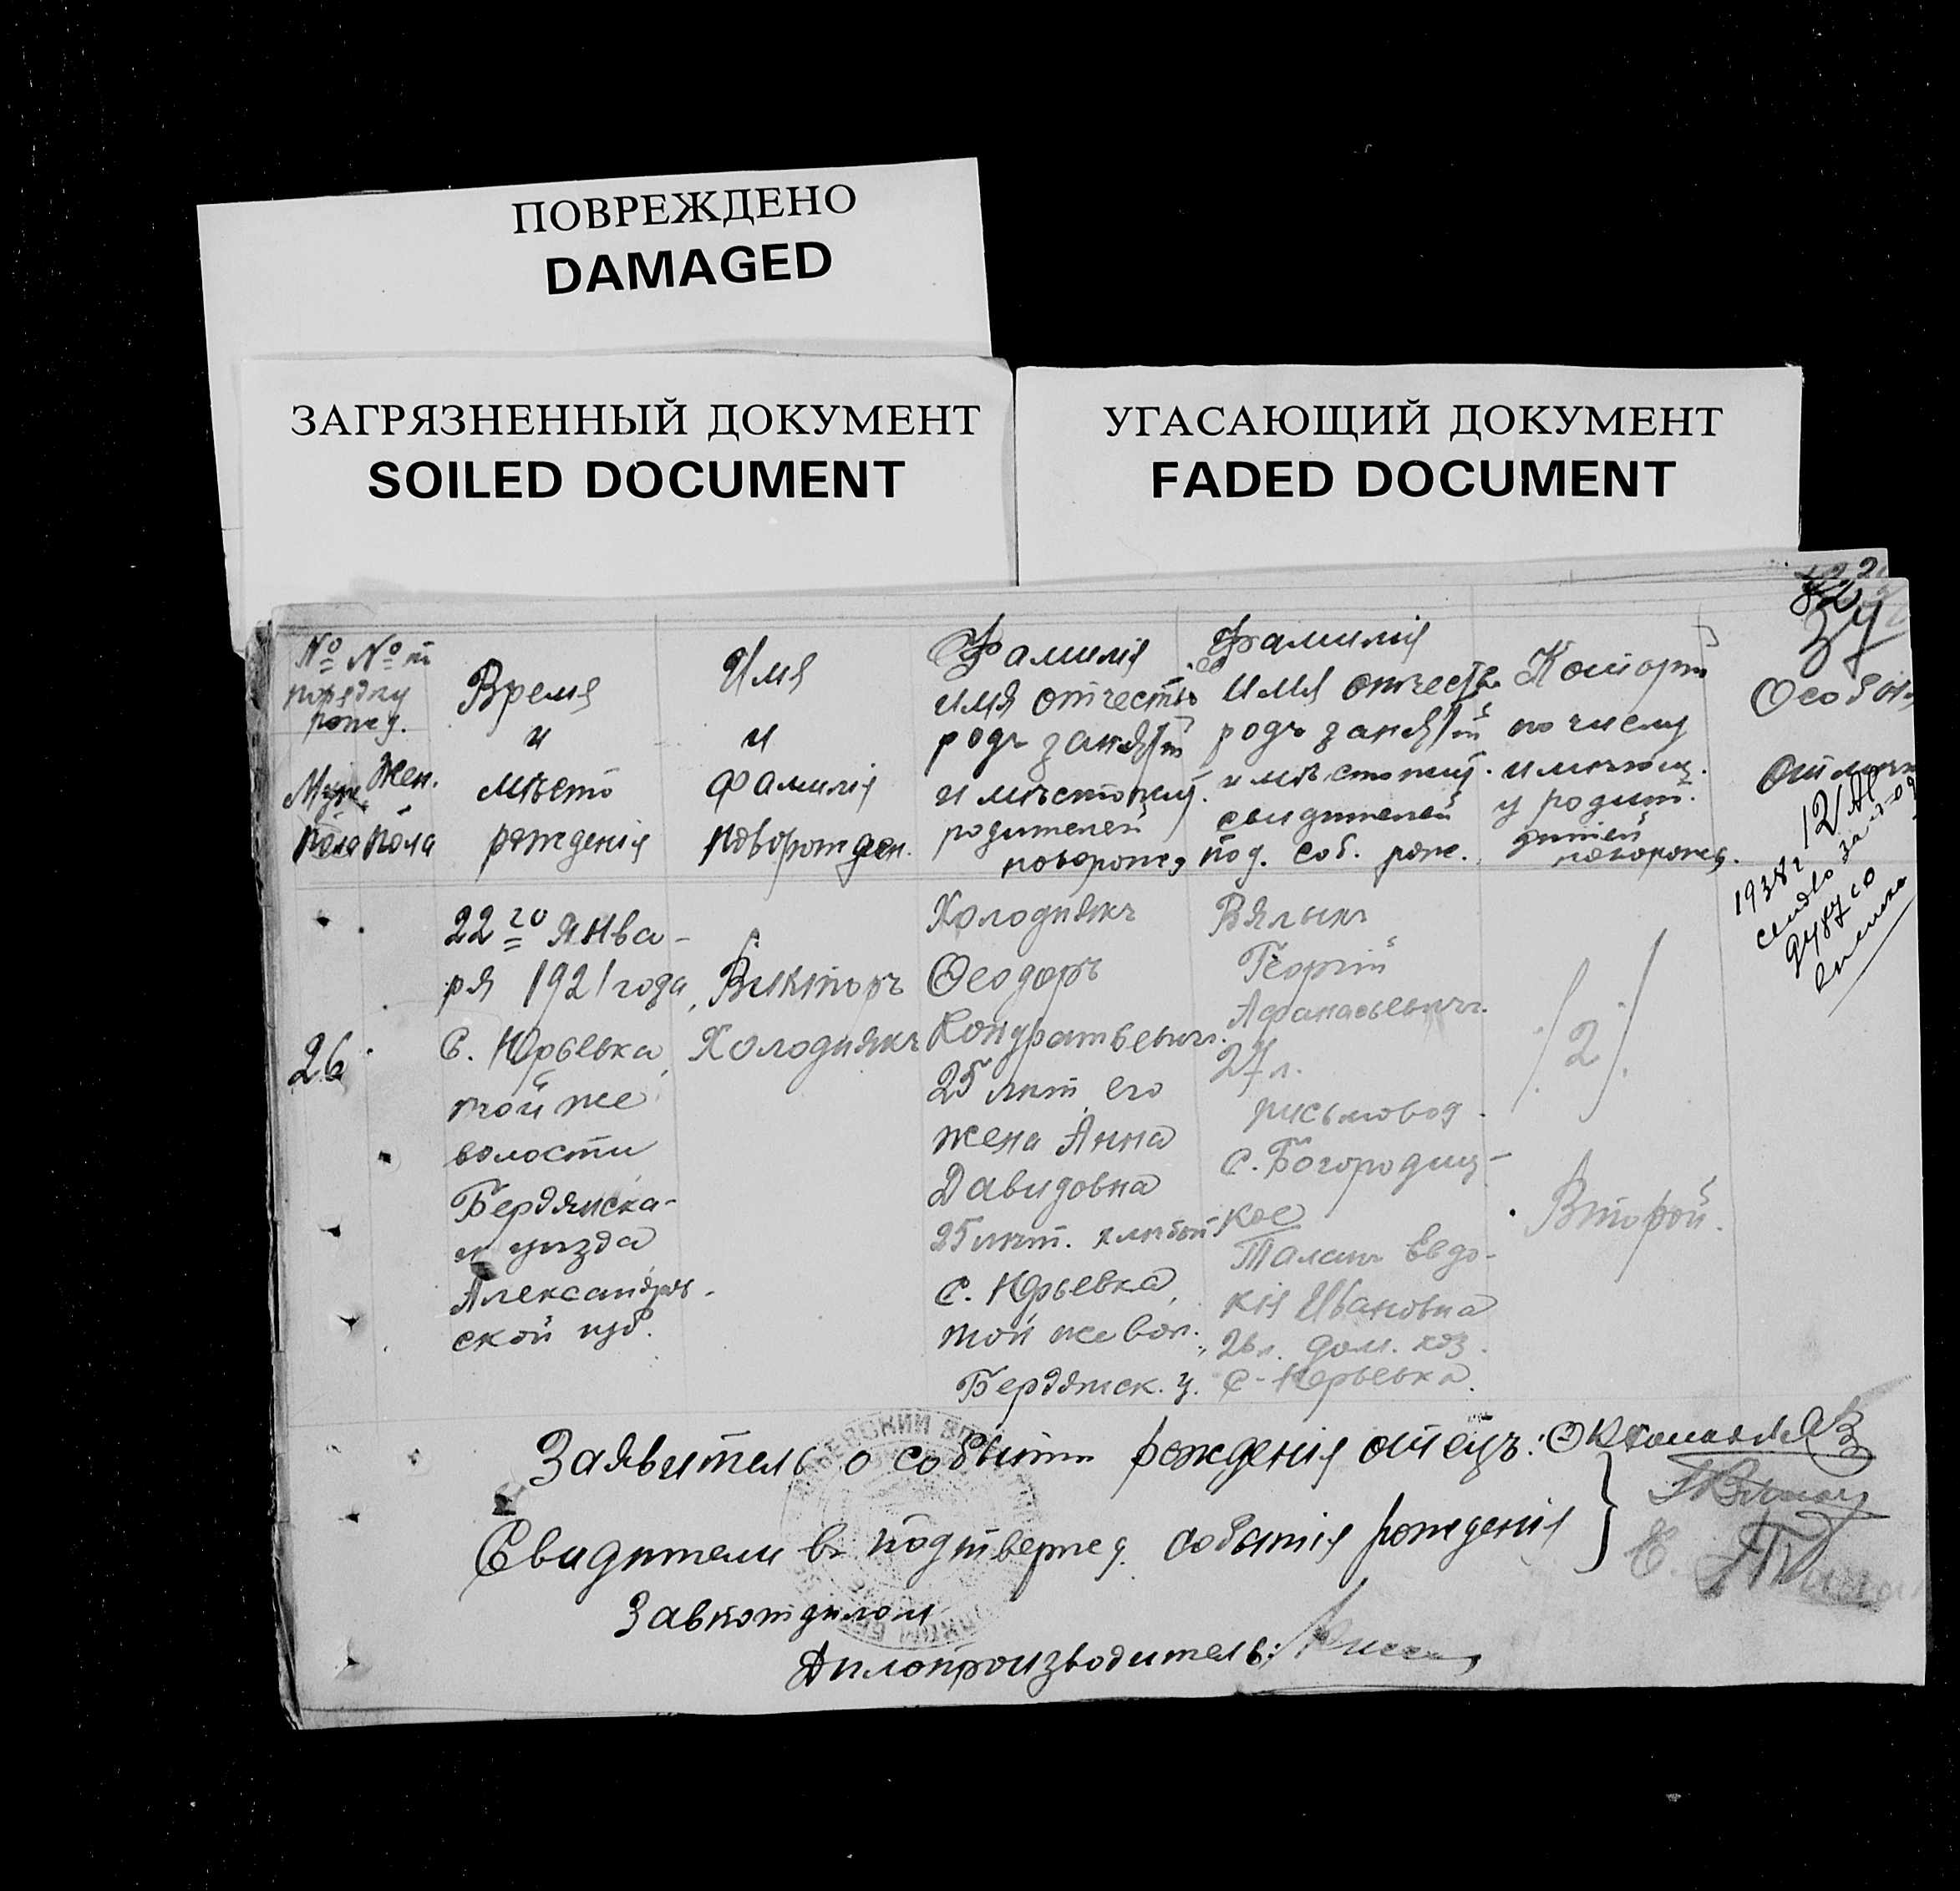 ПОВРЕЖДЕНО
DAMAGED
ЗАГРЯЗНЕННЫЙ ДОКУМЕНТ
SOILED DOCUMENT
УГАСАЮЩИЙ ДОКУМЕНТ
FADED DOCUMENT
34
№ №
порядку
рожд.
Муж. Жен.
пола пола
Время
и
мѣсто
рожденія
Имя
и
фамилія
новорожден.
Фамилія
имя отчество
родъ занятій
и мѣстожит.
родителей
поворожд
Фамилія
имя отчество
родъ занятій
и мѣстожит.
свидѣтелей
под. соб. рож.
Который
по числу
имѣющ.
у родит.
дѣтей
новорожд.
Особыя
отмѣтк
1938г
26
22го Янва-
ря 1921 года
с. Юрьевка,
той же
волости
Бердянска-
го уѣзда
Александров-
ской губ.
Викторъ
Холоднякъ
Холоднякъ
Ѳеодоръ
Кондратьевичъ
25 лѣт его
жена Анна
Давидовна
25 лѣт. хлѣбоп
с. Юрьевка,
той же вол.
Бердянск. у.
Вялыкъ
Георгій
Афанасьевичъ
27 л.
письмовод.
с. Богородиц-
кое
Талань Евдо-
кія Ивановна
26 л. дом. хоз.
с. Юрьевка.
/2/
Второй.
Заявитель о событіи рожденія отецъ:
Свидѣтели въ подтвержд. событія рожденія
Завподотдѣлом
Дѣлопроизводитель: